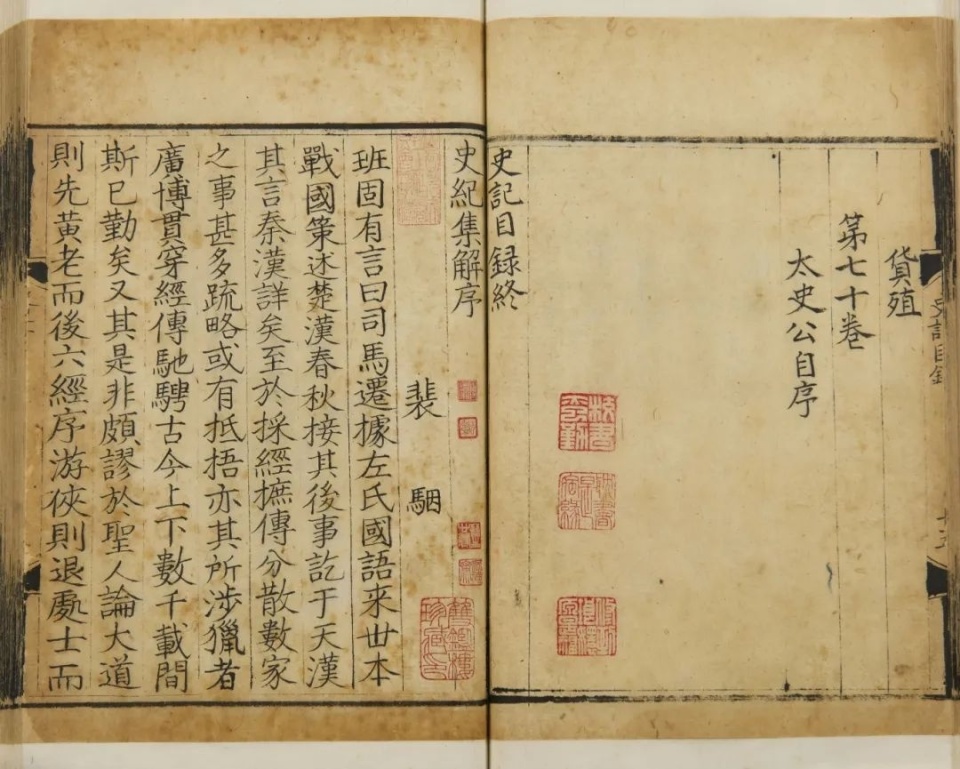 貨殖
第七十卷
太史公自序
史記目録終
史紀集解序
裴駰
班固有言曰司馬遷據左氏國語来丗本
戰國策述楚漢春秋接其後事訖于天漢
其言秦漢詳矣至於採經摭傳分散數家
之事甚多疏略或有抵捂亦其所涉獵者
廣博貫穿經傳馳騁古今上下數千載間
斯已勤矣又其是非頗謬於聖人論大道
則先黃老而後六經序游俠則退處士而